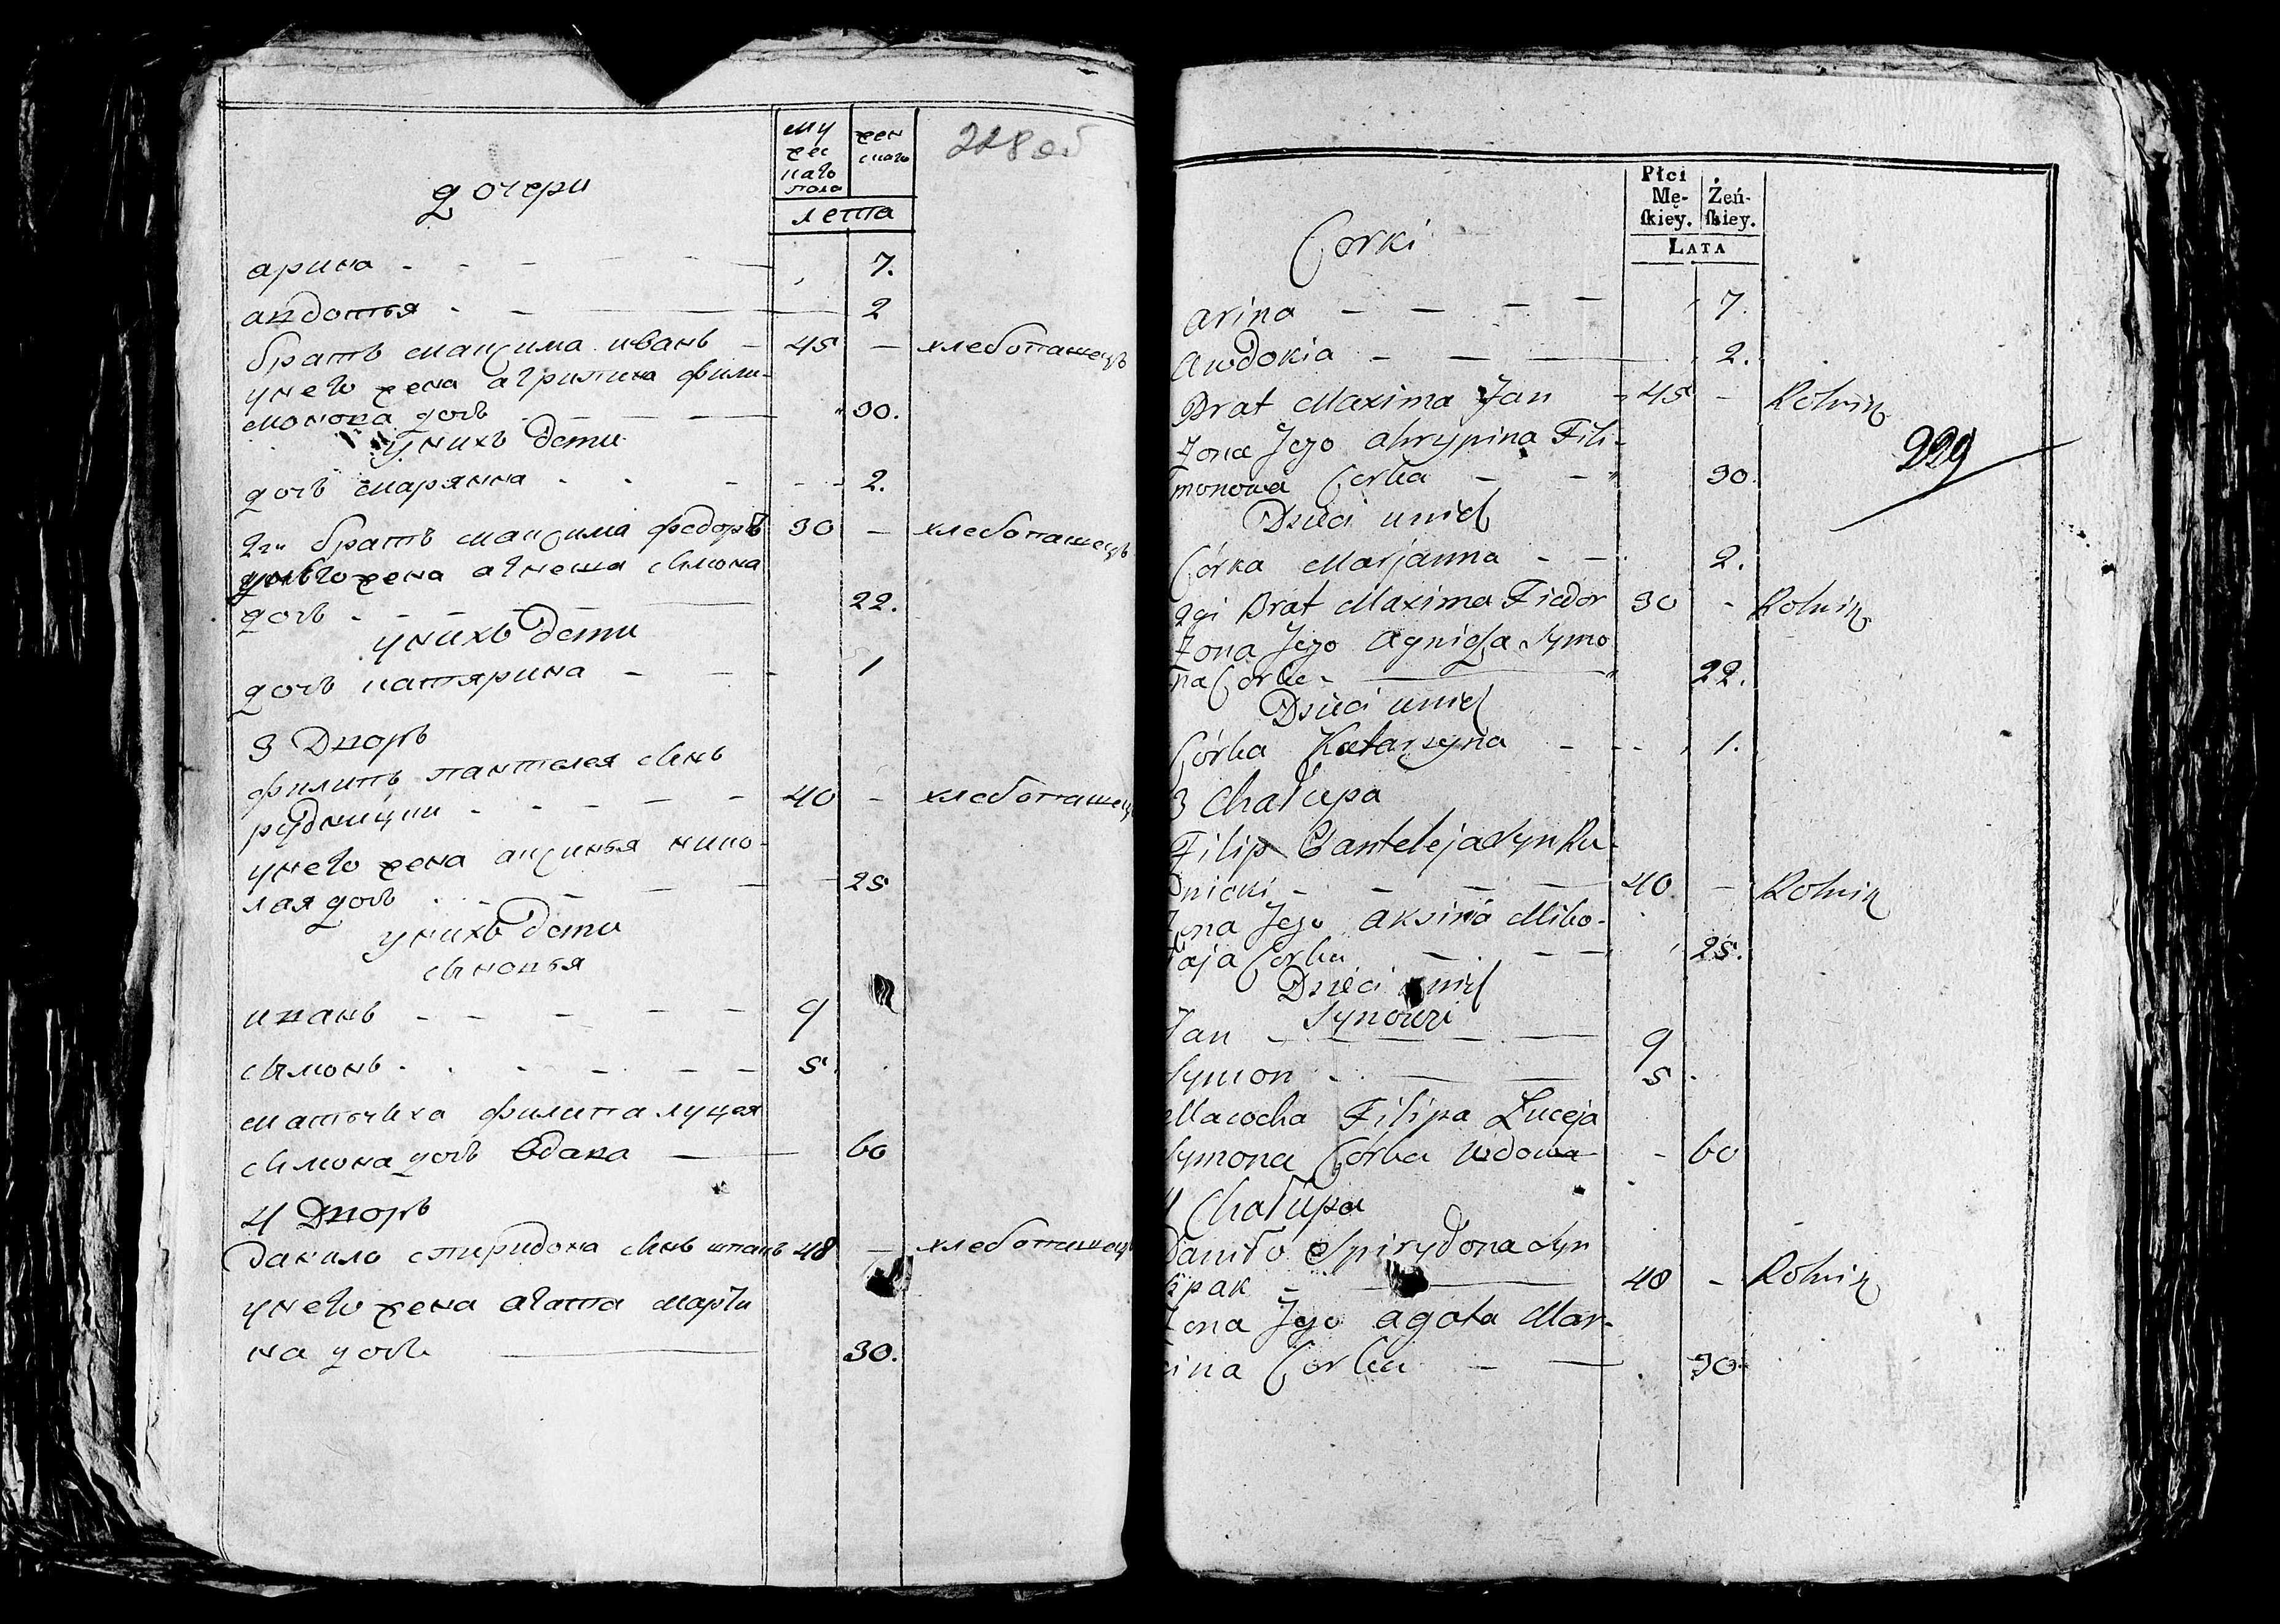 му
жес
каго
пола
жен
скаго
228 об
лета
дочери
арина - - - - - 7.
авдотья - - - 2
братъ максима иванъ - 45 - хлебопашецъ
унего жена агрипина фили-
монова дочь - - - 30.
унихъ дети
дочь марянна - - - 2.
2й братъ максима федоръ 30 - хлебопашецъ
унего жена агнеша симона
дочь - - - 22.
унихъ дети
дочь катярина - - - 1
3 Дворъ
филипъ пантелея синъ
рудницки - - - - - 40 - хлебопашец
унего жена аксинья нико-
лая дочь - - - 25
унихъ дети
синовья
иванъ - - - - - 9
симонъ - - - - - 5.
матчиха филипа луцея
симона дочь вдава - 60
4 Дворъ
данило спиридона синъ шпакъ 48 - хлебопашецъ
унего жена агата марти
на дочь - 30.
Płci
Mę-
ſkiey.
Żeń-
ſkiey.
LATA
Corki
Arina - - - - 7.
Awdokia - - - 2.
Brat Maxima Jan - 45 - Rolnik
229
Zona Jego Ahrypina Fili-
monowa Corka - - 30.
Dzieci unich
Córka Marjanna - - 2.
2gi Brat Maxima Fiedor 30 - Rolnik
Zona Jego Agnieszka Symo
na Corka - 22.
Dzieci unich
Córka Katarzyna - - - 1.
3 Chałupa
Filip Panteleja Syn Ru-
dnicki - - - - 40 - Rolnik
Zona Jego Aksinia Miko-
łaja Corka - - - 25.
Dzieci unich
Synowie
Jan - - - - 9
Symon - - - 5.
Macocha Filipa Łuceja
Symona Córka Wdowa - 60
4 Chałupa
Daniło Spirydona Syn
Szpak - - 48 - Rolnik
Zona Jego Agata Mar-
cina Corka - - 30.